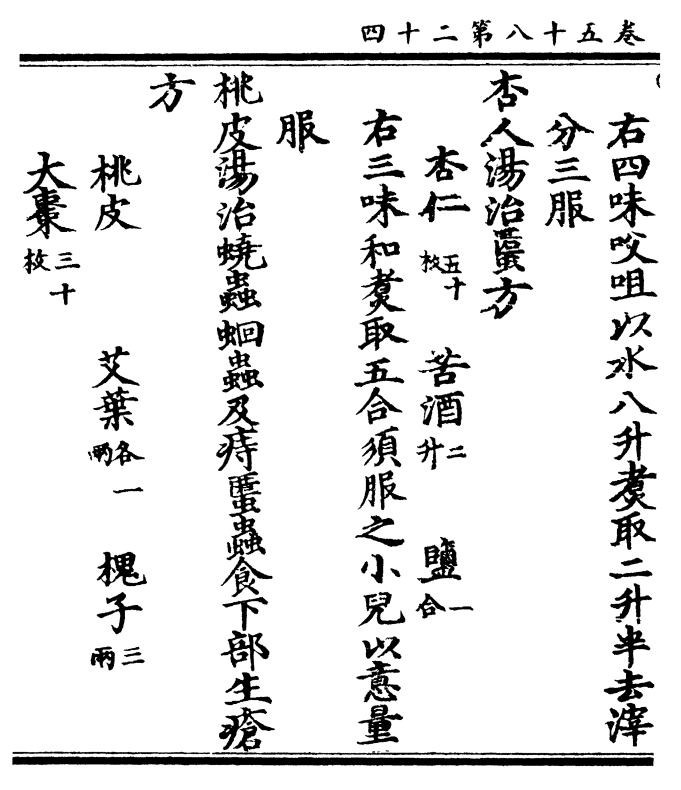 卷五十八第二十四
右四味㕮咀以水八升煑取二升半去滓
分三服
杏人湯治䘌方
杏仁五十枚 苦酒二升 鹽一合
右三味和煑取五合須服之小兒以意量
服
桃皮湯治蟯蟲蛔蟲及痔䘌蟲食下部生瘡
方
桃皮 艾葉各一兩 槐子三兩
大棗三十枚